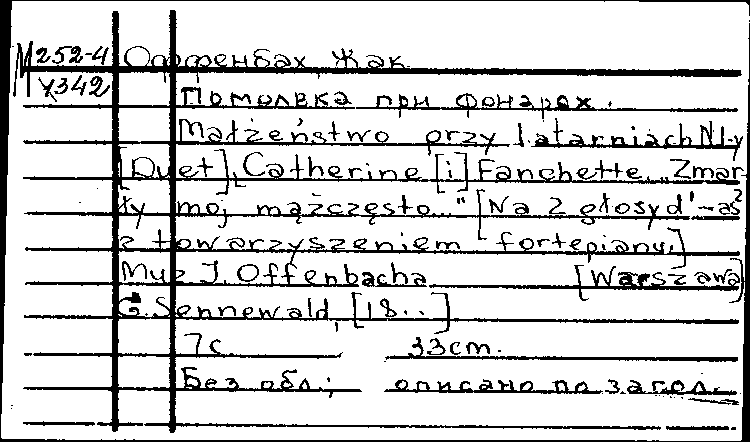 М 252-4 Оффенбах, Жак.
У342
Помолвка при фонарях.
Małżeństwo przy latarniach N 1-y
[Duet], Catherine [i] Fanchette. „Zmar-
ły moj mąż często..." [Na 2 głosy d'-as²
z towarzyszeniem fortepianu.]
Muz J. Offenbacha [Warszawa]
G. Sennewald, [18..]
7с. 33cm.
Без обл.; описано по загол.